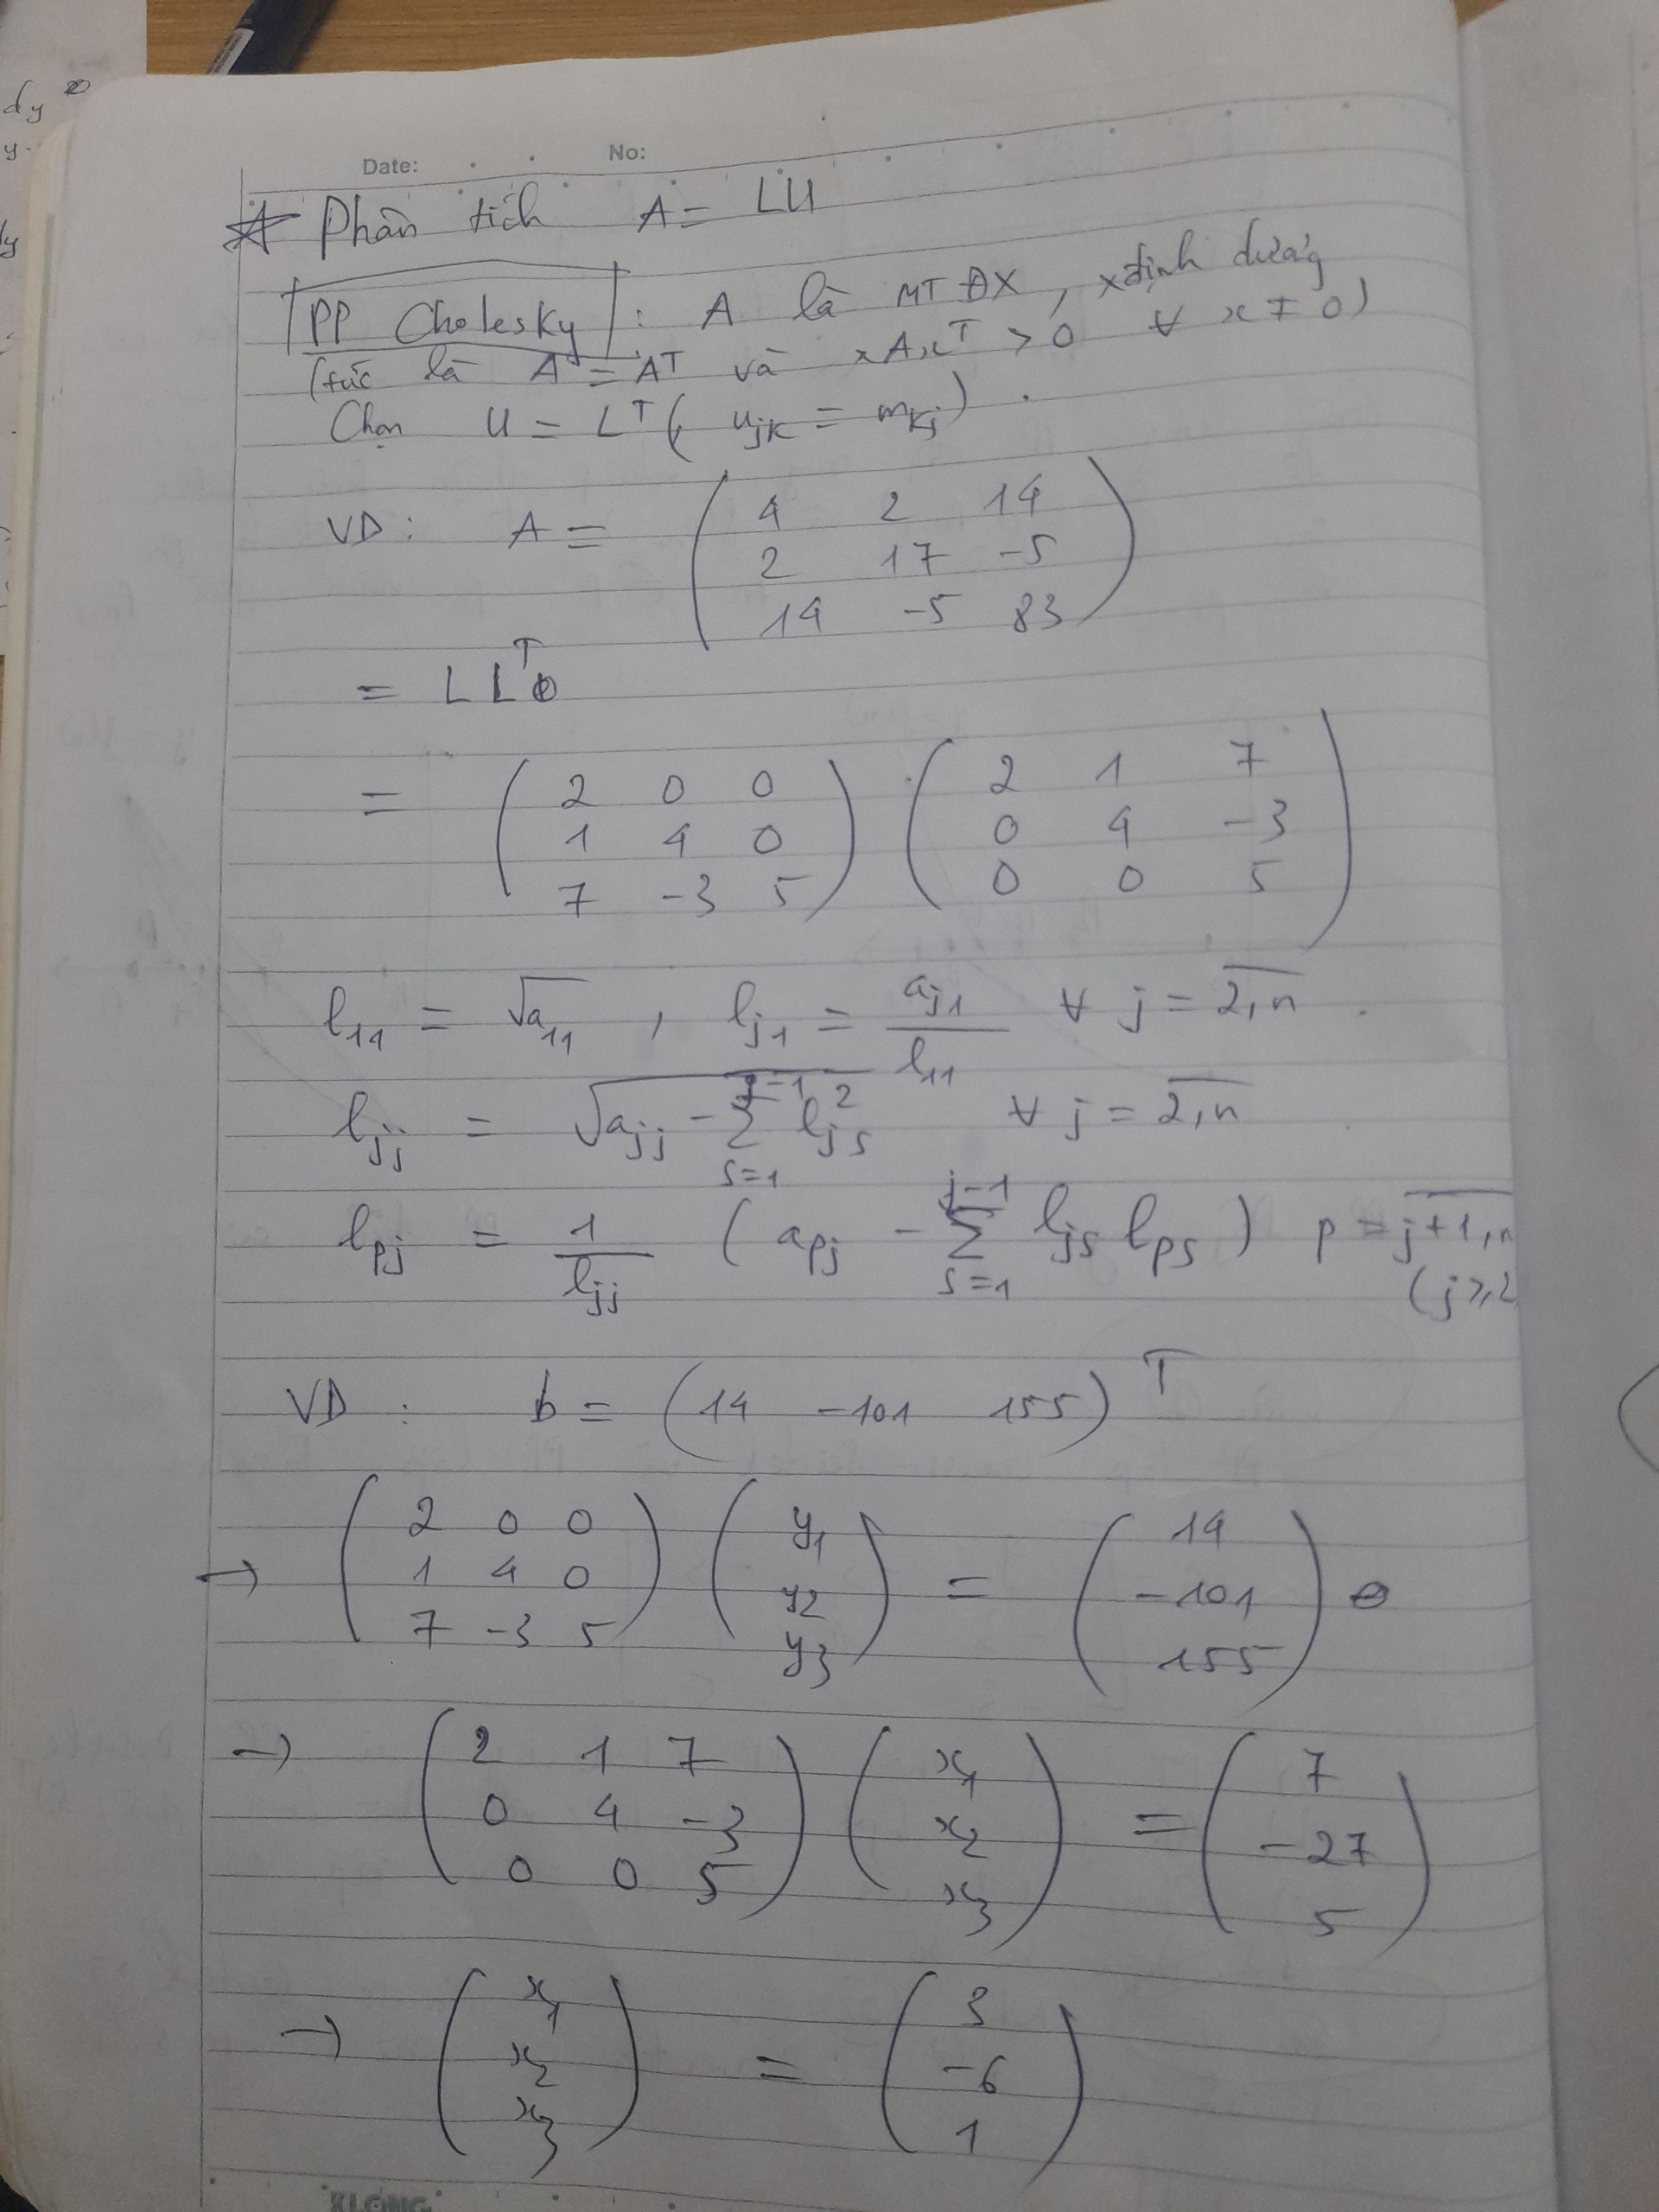 dy
y
Date: No:
☆ Phân tích A = LU
PP Cholesky : A là MT ĐX, x định dương
(tức là A = A^T và xAx^T > 0 ∀ x ≠ 0)
Chọn U = L^T ( u_jk = m_kj ) .
VD : A = ( 4 2 14
2 17 -5
14 -5 83 )
= L L^T
= ( 2 0 0 ) ( 2 1 7 )
( 1 4 0 ) ( 0 4 -3 )
( 7 -3 5 ) ( 0 0 5 )
l_11 = √a_11 , l_j1 = a_j1 / l_11 ∀ j = 2,n .
l_jj = √(a_jj - Σ_{s=1}^{j-1} l_js^2) ∀ j = 2,n
l_pj = 1 / l_jj ( a_pj - Σ_{s=1}^{j-1} l_js l_ps ) p = j+1,n
(j ≥ 2
VD : b = (14 -101 155)^T
→ ( 2 0 0 ) ( y_1 ) = ( 14 )
( 1 4 0 ) ( y_2 ) ( -101 )
( 7 -3 5 ) ( y_3 ) ( 155 )
→ ( 2 1 7 ) ( x_1 ) = ( 7 )
( 0 4 -3 ) ( x_2 ) ( -27 )
( 0 0 5 ) ( x_3 ) ( 5 )
→ ( x_1 ) = ( 3 )
( x_2 ) ( -6 )
( x_3 ) ( 1 )
KLONG